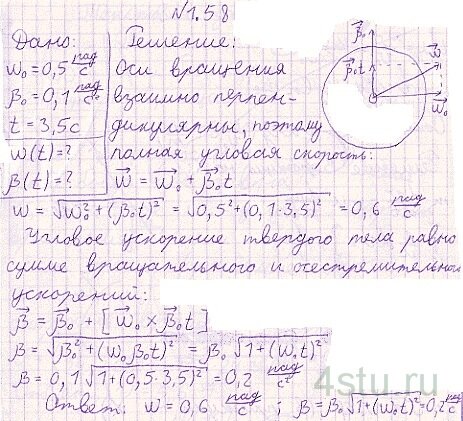 №1.58
Дано:
ω₀ = 0,5 рад/с
β₀ = 0,1 рад/с²
t = 3,5 с
ω(t) = ?
β(t) = ?
Решение:
Оси вращения
взаимно перпен-
дикулярны, поэтому
полная угловая скорость:
ω⃗ = ω⃗₀ + β⃗₀t
β⃗₀
β⃗₀t
ω⃗
ω⃗₀
ω = √(ω₀² + (β₀t)²) = √(0,5² + (0,1·3,5)²) = 0,6 рад/с
Угловое ускорение твердого тела равно
сумме вращательного и осестремительного
ускорений:
β⃗ = β⃗₀ + [ω⃗₀ × β⃗₀t]
β = √(β₀² + (ω₀β₀t)²) = β₀√(1+(ω₀t)²)
β = 0,1√(1+(0,5·3,5)²) = 0,2 рад/с²
Ответ: ω = 0,6 рад/с ; β = β₀√(1+(ω₀t)²) = 0,2 рад/с²
4stu.ru